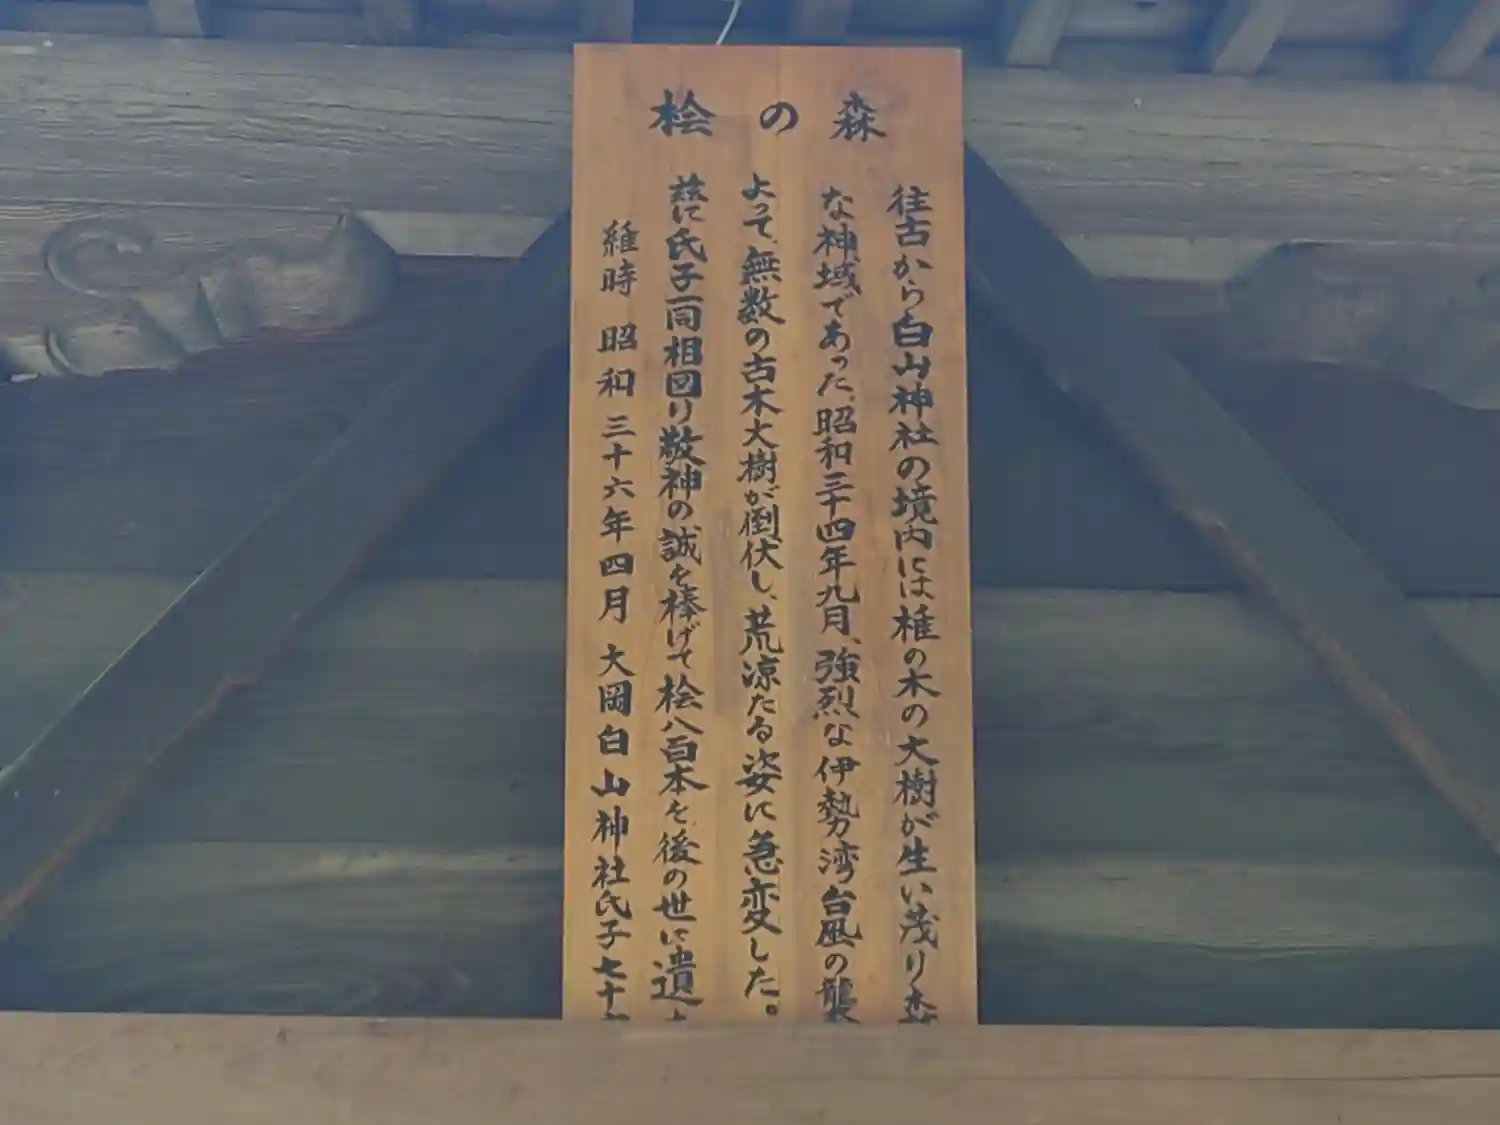 桧の森
往古から白山神社の境内には椎の木の大樹が生い茂り森
な神域であった。昭和三十四年九月、強烈な伊勢湾台風の襲
よって、無数の古木大樹が倒伏し、荒涼たる姿に急変した。
茲に氏子一同相図り敬神の誠を捧げて桧八百本を後の世に遺
維時 昭和三十六年四月 大岡白山神社氏子七十